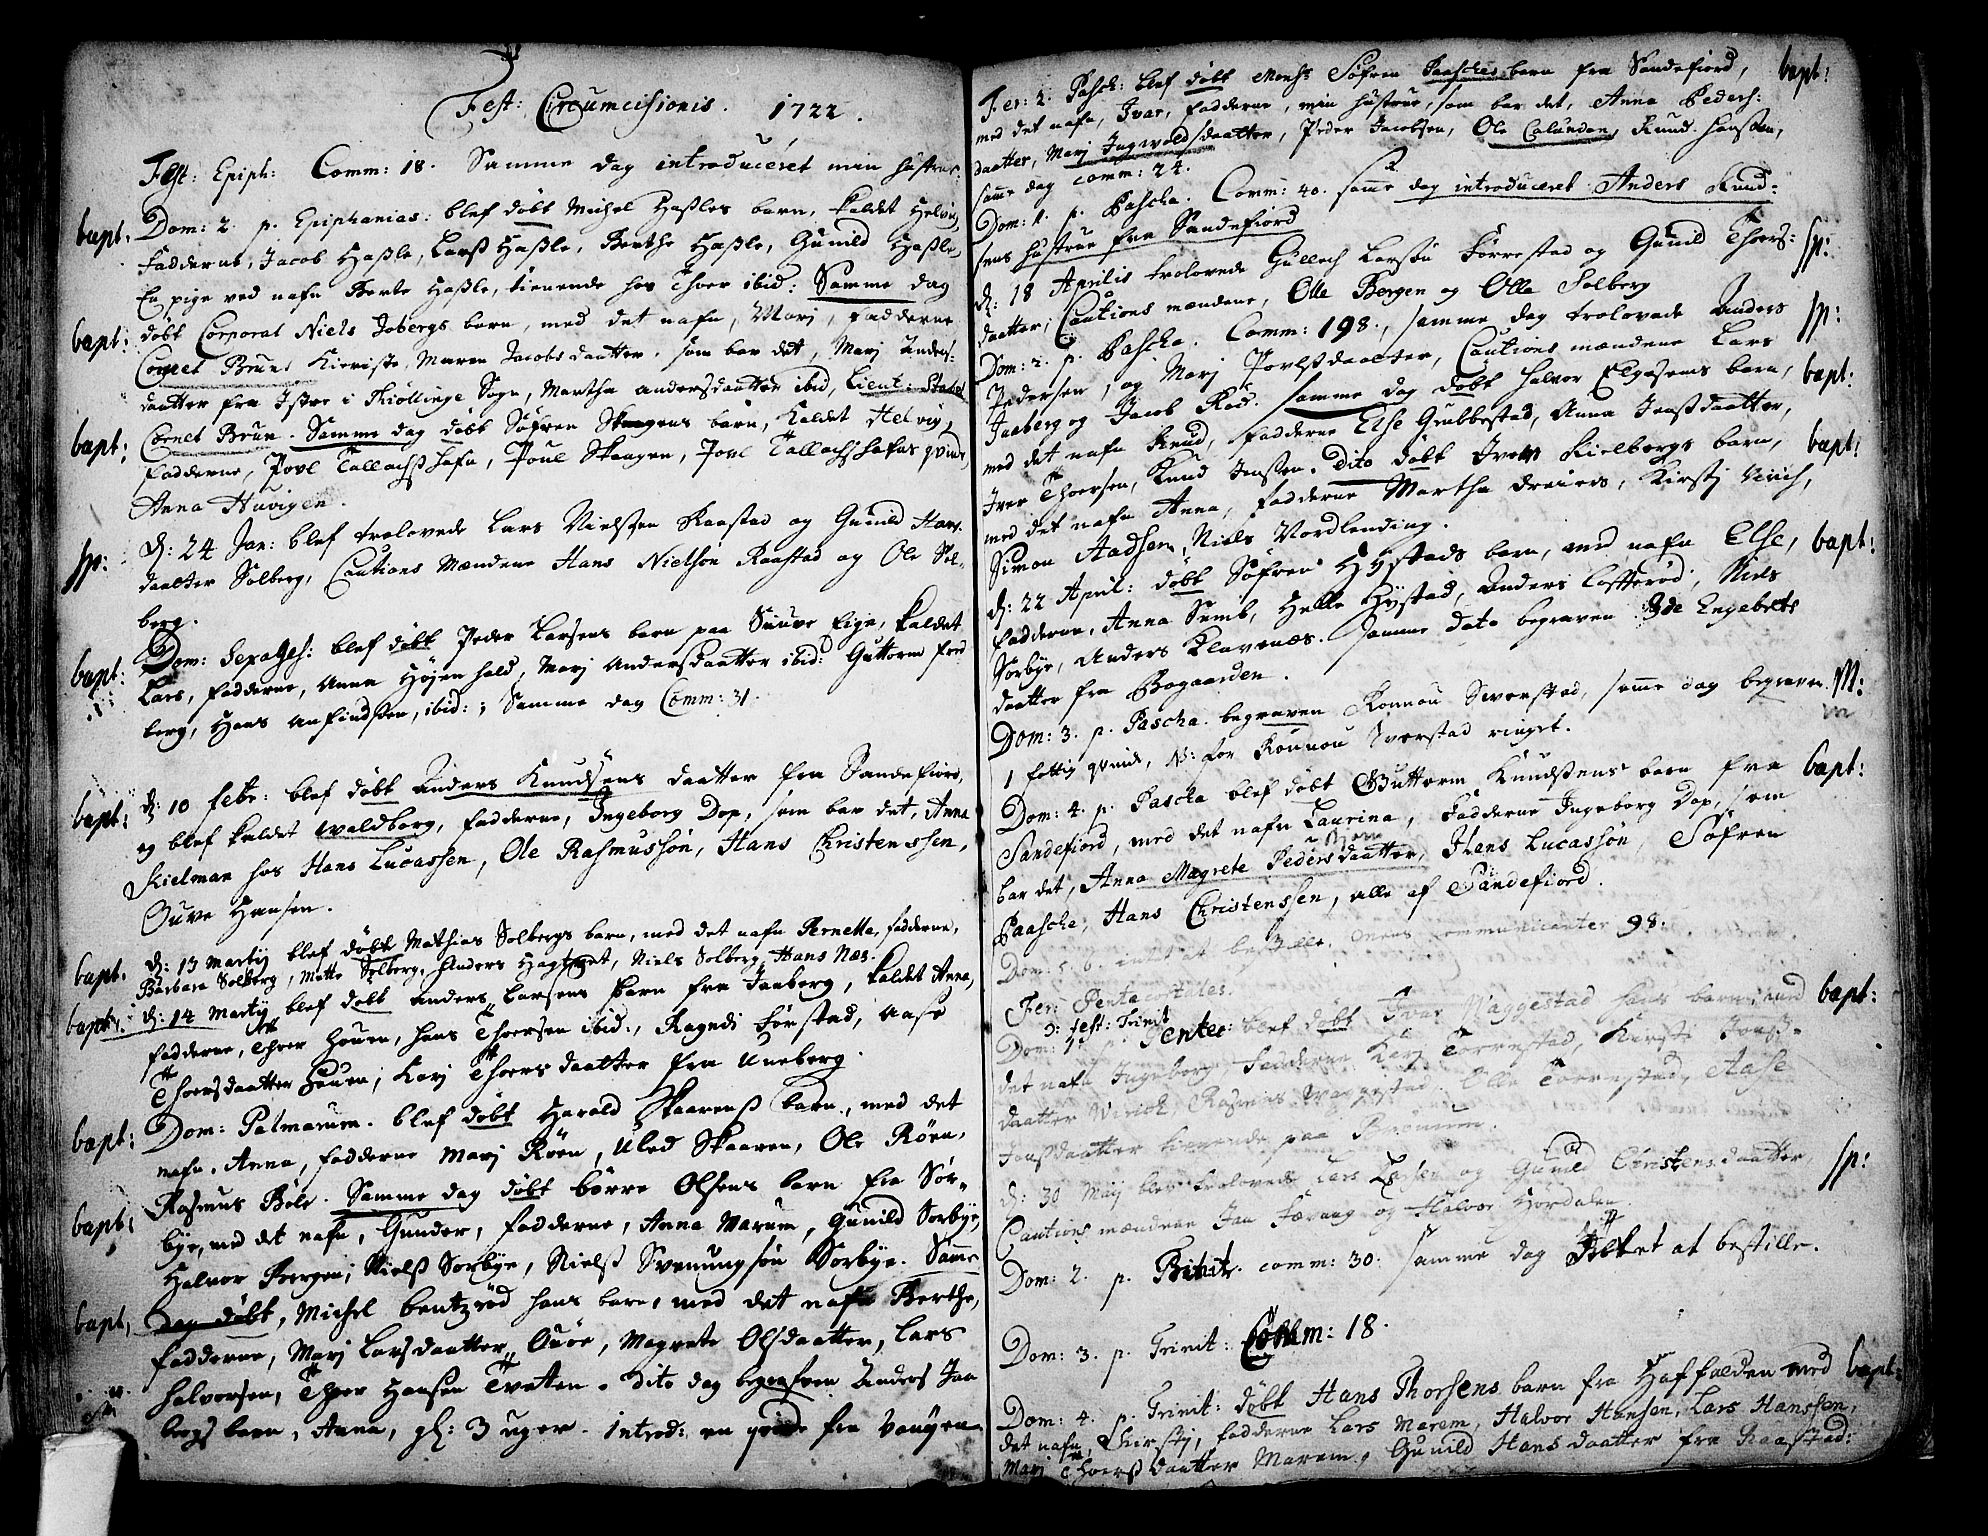 Fest: Circumcisionis. 1722.
Fest: Epiph: Comm: 18. Samme dag introduceret min hustrue.
bapt: Dom: 2. p. Epiphanias: blef døbt Michel Hasles barn, kaldet Helvig,
Fadderne, Jacob Hasle, Larss Hasle, Berthe Hasle, Gunild Hasle,
En pige ved nafn Berte Hasle, tienende hos Thoer ibid: Samme dag
bapt: døbt Corporal Niels Jobergs barn, med det nafn, Marj, fadderne
Cornet Bruns, Maren Jacobsdaatter, som bar det, Marj Anders-
daatter fra Istre i Kiøllinge Sogn, Martha andersdaatter ibid, Lieut: Stabel
bapt: Cornet Brun. Samme dag døbt Søfren Skaagens barn, kaldet Helvig,
Fadderne, Povl Tallachshafn, Poul Skaagen, Povl Tallachshafns qvinde,
Anna Huvigen.
sp: d: 24 Jan: blef trolovede Lars Nielssen Raastad og Gunild Hans-
daatter Solberg, Cautions Mændene Hans Nielsøn Raastad og Ole Sol-
berg.
bapt: Dom: Septuages: blef døbt Peder Larsens barn paa Eige, kaldet
Lars, fadderne, Anna Højenhald, Marj Andersdaatter ibid: Guttorm Fred
berg, Hans Anfindssen, ibid:; Samme dag Comm: 31.
bapt: d: 10 febr: blef døbt Anders Knudsens daatter fra Sandefiord,
og blef kaldet Waldborg, fadderne, Ingeborg Dop, som bar det, Anna
Kielman hos Hans Lucassen, Ole Rasmussøn, Hans Christenssen,
Ouve Hansen.
bapt. d: 13 Martij blef døbt Mathias Solbergs barn, med det nafn Pernella, fadderne,
Barbara Solberg, Mette Solberg, Anders, Niels Solberg, Hans Næs.
bapt: d: 14 Martij blef døbt Anders Larsens barn fra Jaaberg, kaldet Anna,
fadderne, Thoer Houen, Hans Thoersen ibid:, Ragndi Førstad, Aase
Thoersdaatter Houen, Karj Thoersdaatter fra Uneberg.
bapt: Dom: Palmarum. blef døbt Harald Skaarenss barn, med det
nafn, Anna, fadderne Marj Röen, Uled Skaaren, Ole Röen,
Rasmus Böle. Samme dag døbt börre Olsens barn fra Sör-
bapt: bye, med det nafn, Gunder, fadderne, Anna Marum, Gunild Sorbye,
Halvor Bergen, Nielss Sorbye, Nielss Svenungsøn Sorbye. Same
bapt, dag døbt, Michel bentzrød hans barn, med det nafn Berthe,
fadderne, Marj Larsdaatter, Magrete Olsdaatter, Lars
Halvorsen, Thoer Hansen Tvetten. Dito dag begrafven Anders Jaa
bergs barn, Anna, gl: 3 uger. Introd: en qvinde fra
bapt: Fer: 2. Pasch: blef døbt Mons: Søfren Paasches barn fra Sandefiord,
med det nafn, Ivar, fadderne, min hustrue, som bar det, Anna Peders-
daatter, Marj Ingvoldsdaatter, Peder Jacobsen, Ole Calundan, Knud Hanssen,
same dag comm: 24.
Dom: 1. p. Pascha. Comm: 40. same dag introduceret Anders Knud-
sens hustrue fra Sandefiord
sp: d: 18 Aprilis trolovede Gullech Larsøn Förrestad og Gunild Thoers-
daatter, Cautions mændene, Olle Bergen og Olle Solberg
sp: Dom: 2. p. Pascha. Comm: 198., samme dag trolovede Anders
Pedersen, og Marj Povlsdaatter, Cautions mændene Lars
bapt: Jaaberg og Jacob Röd. Samme dag døbt Halvor barn,
med det nafn Knud, fadderne Else Grubbestad, Anna Jenssdaatter,
bapt: Iver Thoersen, Knud Jenssen. Dito døbt Iver Kielbergs barn,
med det nafn Anna, fadderne Martha Dreiers, Kirsti Virich,
Simon Aadsen, Niels Nordlending.
bapt: d: 22 April: døbt Søfren Hystads barn, ved nafn Else,
fadderne, Anna Semb, Helle Hystad, Anders Lofterød, Niels
Sorbye, Anders Klavenæs. Samme dato begraven Ede Engebrets
daatter fra Bogaarden.
M: Dom: 3. p. Pascha. begraven Ronnou Sverstad, same dag begraven
1 fattig qvinde, N: for Ronnou Sverstad ringet.
bapt: Dom: 4. p. Pascha blef døbt Guttorm Knudssens barn fra
Sandefiord, med det nafn Laurina, Fadderne Ingeborg Dop, som
bar det, Anna Magrete Pedersdaatter, Hans Lucassøn, Søfren
Paasche, Hans Christenssen, alle af Sandefiord.
Dom: 5. intet at bestille. communicanter 98.
Fer: Pentacostales.
ɔ: fest: Trinit
bapt: Dom: 1. p. Pentec: blef døbt Ivar Waggestad hans barn, med
det nafn Ingeborg, Fadderne Karj Törrestad, Kirsti Jonss-
daatter Virich, Rasmus Waggestad, Olle Törrestad, Aase
Jonssdaatter tienende paa.
sp: d: 30 Maij blef trolovede Lars og Gunild Christensdaatter,
Cautions mændene Jan og Halvor Hørdalen.
Dom: 2. p. Trinit. comm: 30. Samme dag Intet at bestille.
Dom: 3. p. Trinit: Comm: 18.
bapt: Dom: 4. p. Trinit: døbt Hans Thorsens barn fra Haffalden med
det nafn, Chirstj, fadderne Lars Marem, Halvor Hansen, Lars Hanssen,
Marj Thoerssdaatter Marem, Gunild Hansdaatter fra Raastad: